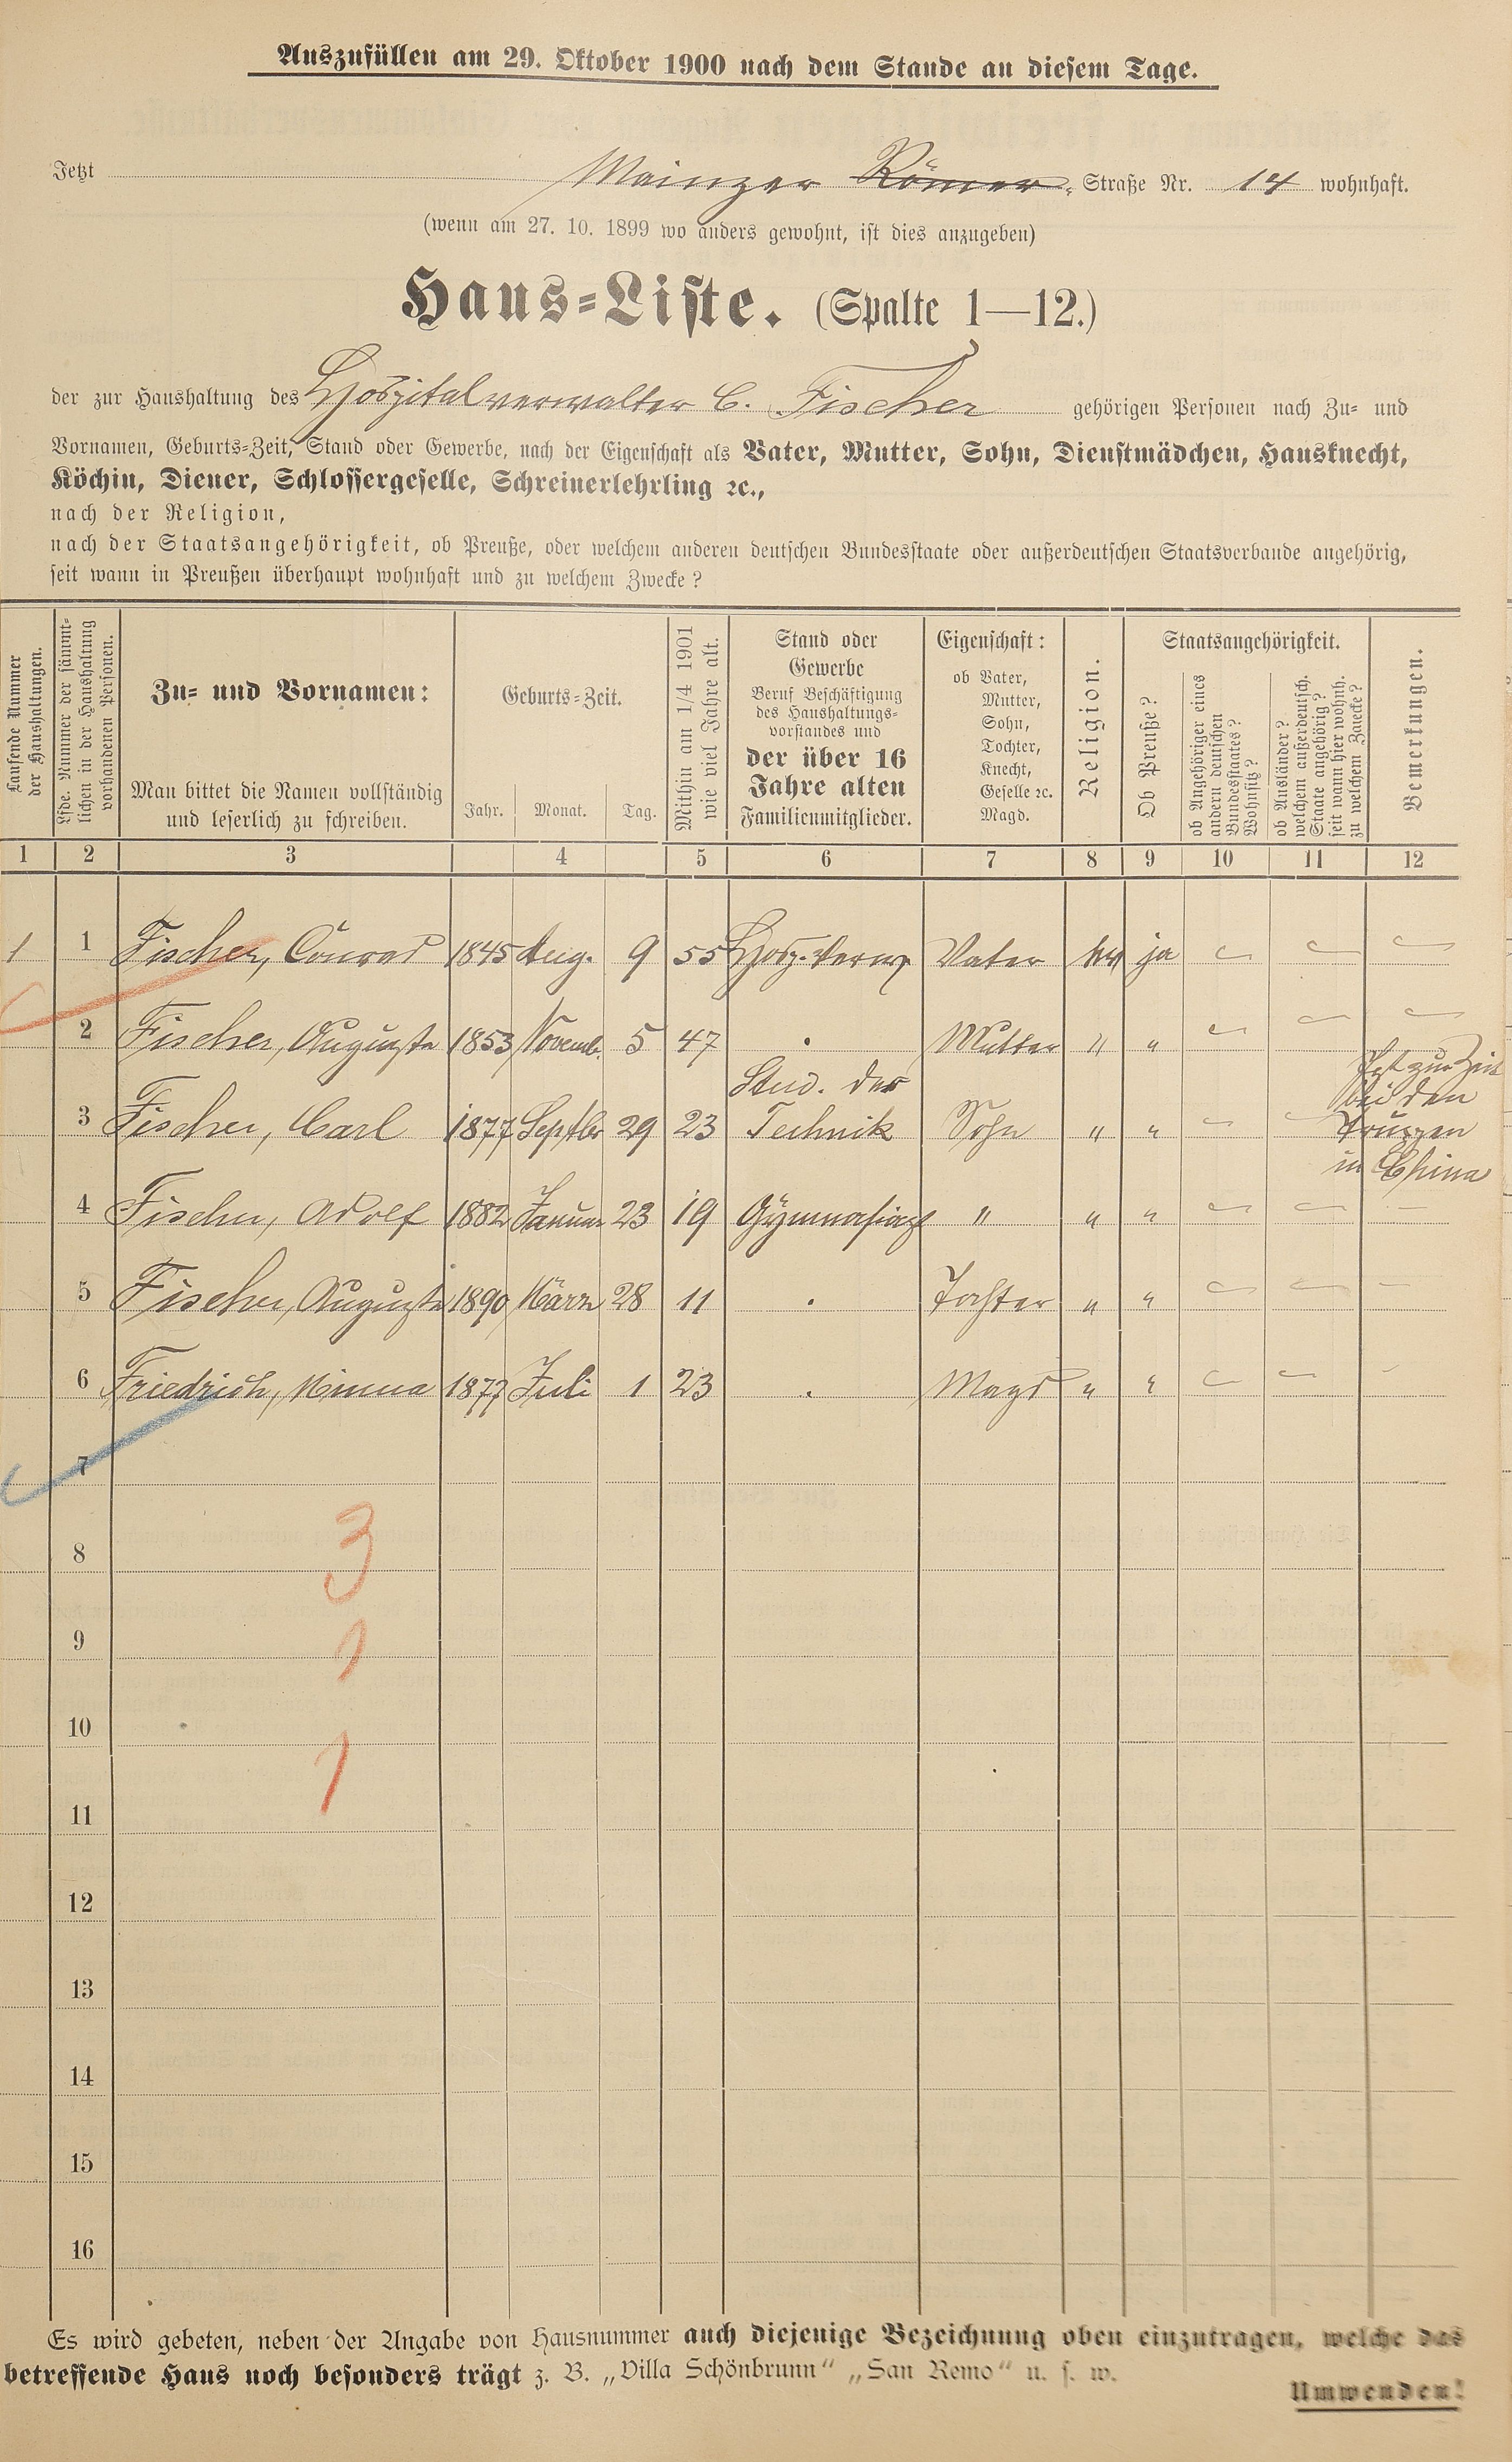 Auszufüllen am 29. Oktober 1900 nach dem Stande an diesem Tage.
Jetzt Mainzer Römer-Straße Nr. 14 wohnhaft.
(wenn am 27. 10. 1899 wo anders gewohnt, ist dies anzugeben)
Haus-Liste. (Spalte 1—12.)
der zur Haushaltung des Hospitalverwalter C. Fischer gehörigen Personen nach Zu- und
Vornamen, Geburts-Zeit, Stand oder Gewerbe, nach der Eigenschaft als Vater, Mutter, Sohn, Dienstmädchen, Hausknecht,
Köchin, Diener, Schlossergeselle, Schreinerlehrling ꝛc.,
nach der Religion,
nach der Staatsangehörigkeit, ob Preuße, oder welchem anderen deutschen Bundesstaate oder außerdeutschen Staatsverbande angehörig,
seit wann in Preußen überhaupt wohnhaft und zu welchem Zwecke?
Laufende Nummer
der Haushaltungen.
Lfde. Nummer der sämmt-
lichen in der Haushaltung
vorhandenen Personen.
Zu- und Vornamen:
Man bittet die Namen vollständig
und leserlich zu schreiben.
Geburts-Zeit.
Jahr. Monat. Tag.
Mithin am 1/4 1901
wie viel Jahre alt.
Stand oder
Gewerbe
Beruf Beschäftigung
des Haushaltungs-
vorstandes und
der über 16
Jahre alten
Familienmitglieder.
Eigenschaft:
ob Vater,
Mutter,
Sohn,
Tochter,
Knecht,
Geselle ꝛc.
Magd.
Religion.
Staatsangehörigkeit.
Ob Preuße?
ob Angehöriger eines
andern deutschen
Bundesstaates?
Wohnsitz?
ob Ausländer?
welchem außerdeutsch.
Staate angehörig?
seit wann hier wohnh.
zu welchem Zwecke?
Bemerkungen.
1 2 3 4 5 6 7 8 9 10 11 12
1 1 Fischer, Conrad 1845 Aug. 9 55 Hosp. Verw. Vater ja
2 Fischer, Auguste 1853 Novemb. 5 47 Mutter " "
3 Fischer, Carl 1877 Septbr 29 23 Stud. der Technik Sohn " " Ist zur Zeit
bei den
Truppen
in China
4 Fischer, Adolf 1882 Januar 23 19 Gymnasiast " " "
5 Fischer, Auguste 1890 März 28 11 Tochter " "
6 Friedrich, Minna 1877 Juli 1 23 Magd " "
7
8 3
9 1
10
11 1
12
13
14
15
16
Es wird gebeten, neben der Angabe von Hausnummer auch diejenige Bezeichnung oben einzutragen, welche das
betreffende Haus noch besonders trägt z. B. „Villa Schönbrunn“ „San Remo“ u. s. w.
Umwenden!